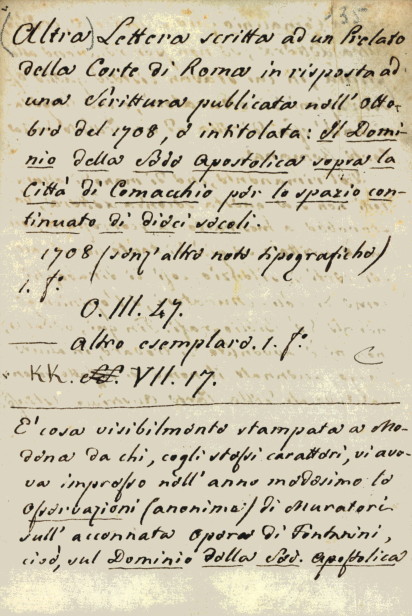 135
(Altra) Lettera scritta ad un Prelato
della Corte di Roma in risposta ad
una Scrittura publicata nell' Otto-
bre del 1708, e intitolata: Il Domi-
nio della Sede Apostolica sopra la
Città di Comacchio per lo spazio con-
tinuato di dieci secoli.
1708 (senz' altre note tipografiche)
1. fº.
O. III. 47.
— Altro esemplare. 1. fº.
KK. VII. 17.
E' cosa visibilmente stampata a Mo-
dena da chi, cogli stessi caratteri, vi ave-
va impresso nell' anno medesimo le
Osservazioni (anonime) di Muratori
sull' accennata Opera di Fontanini,
cioè, sul Dominio della Sed. Apostolica